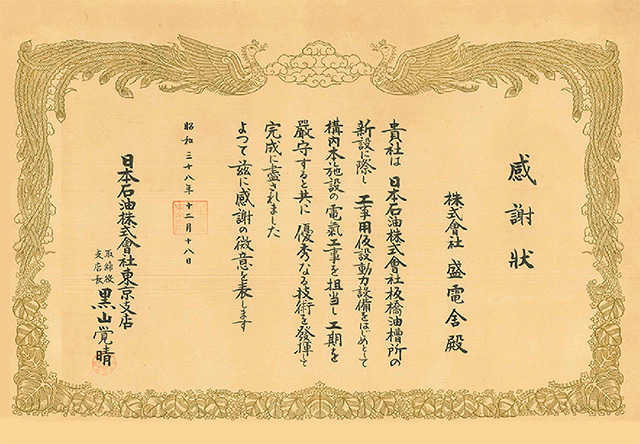 感謝状
株式會社 盛電舎殿
貴社は 日本石油株式會社板橋油槽所の
新設に際し 工事用仮設動力設備をはじめとして
構内本施設の電氣工事を担当し 工期を
嚴守すると共に 優秀なる技術を發揮し
完成に盡されました
よつて茲に感謝の微意を表します
昭和三十八年十二月十八日
日本石油株式會社東京支店
取締役
支店長 黒山覚晴